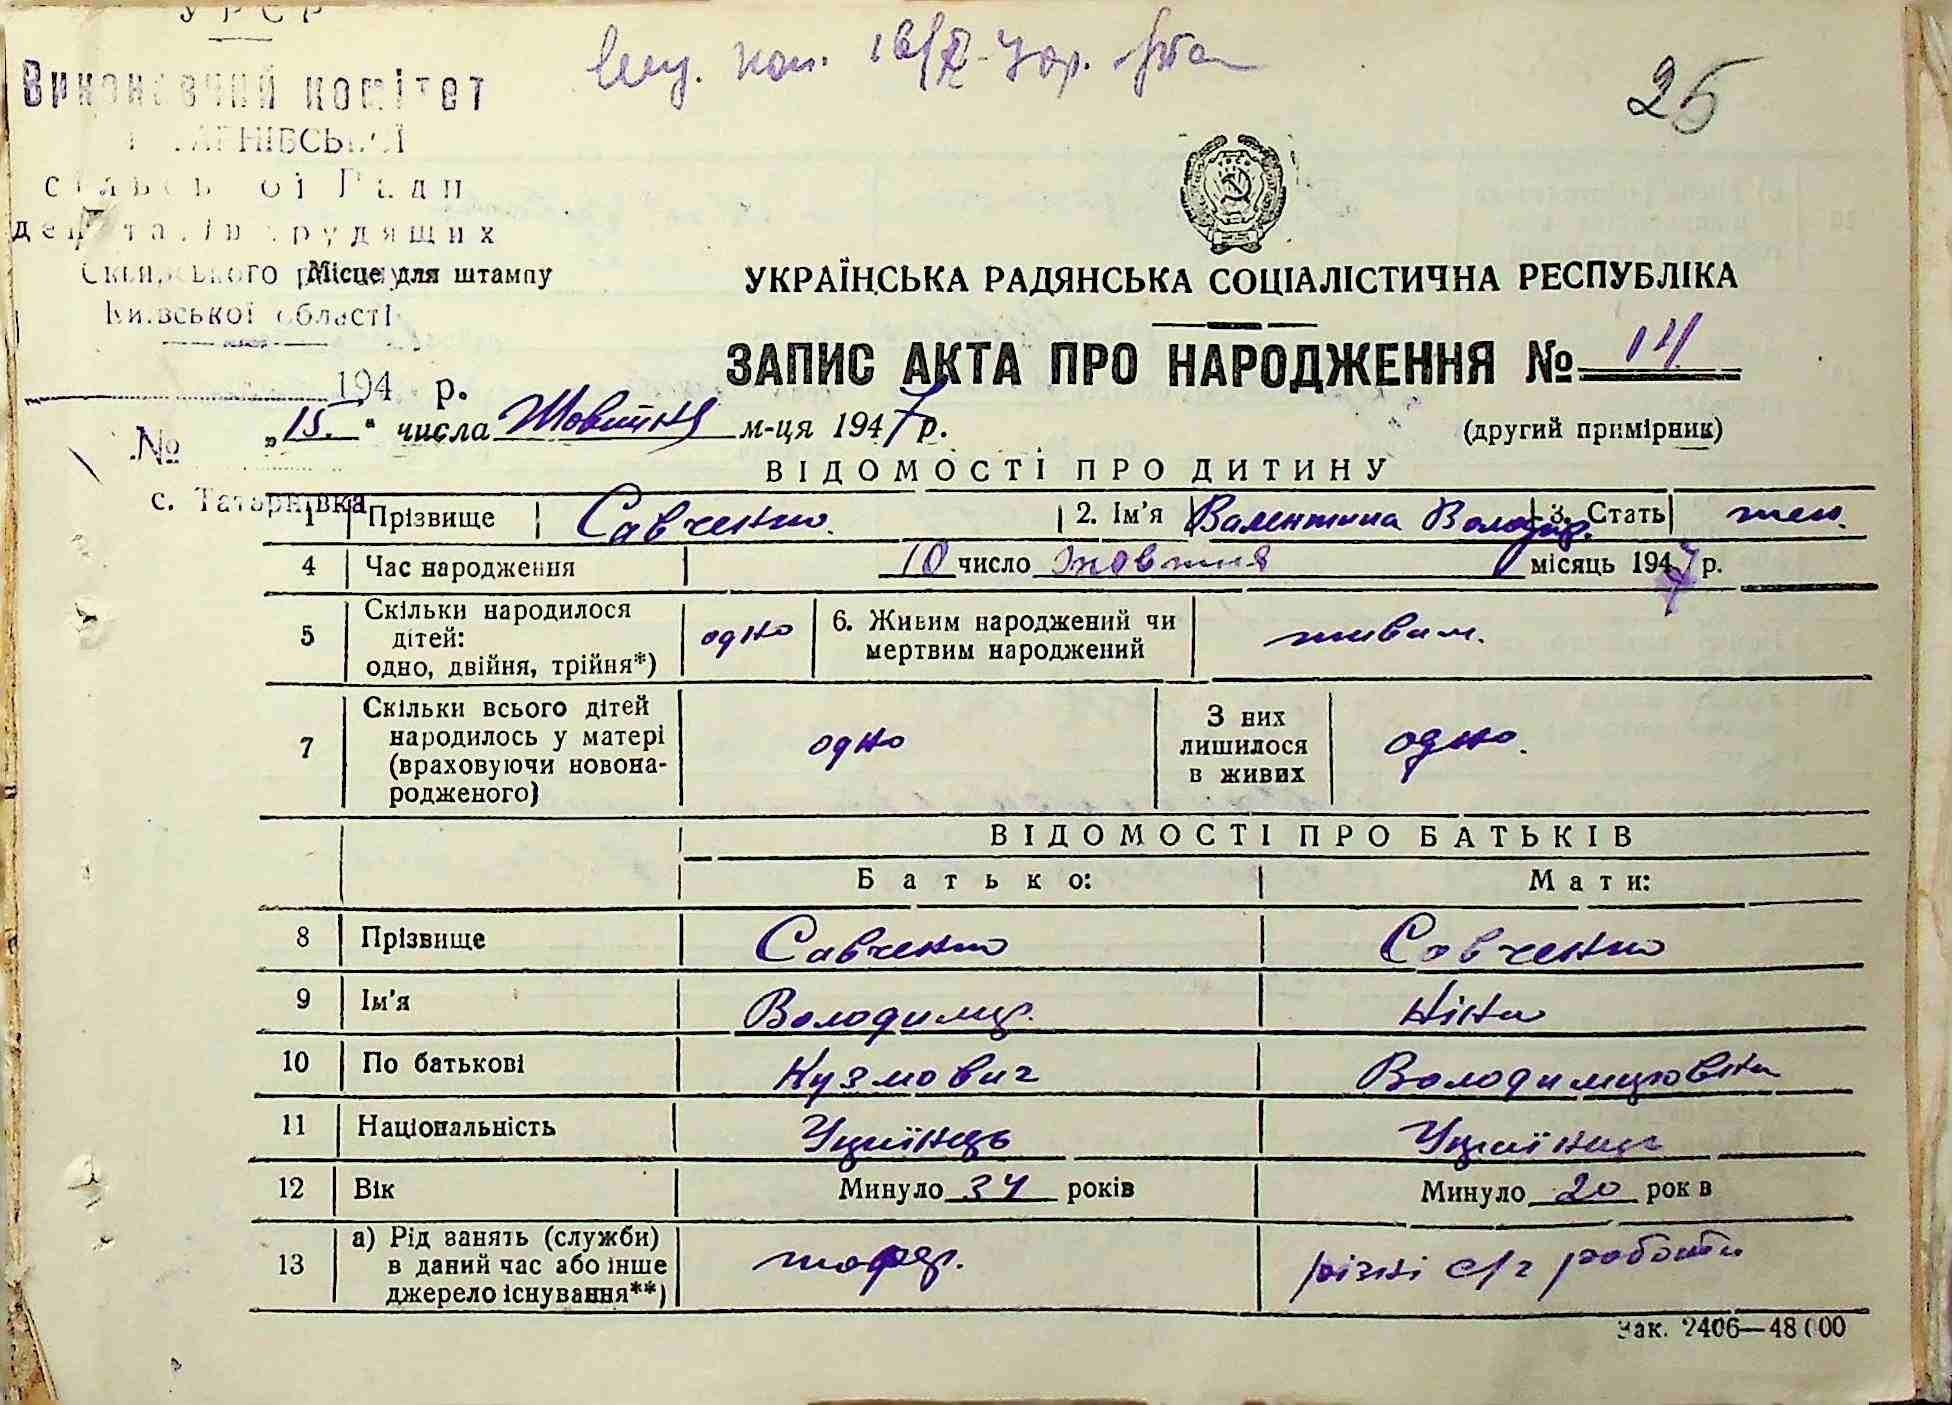 УРСР
Виконавчий комітет
Татарнівської
сільської Ради
депутатів трудящих
Сквирського району
Місце для штампу
Київської області
194 р.
№
с. Татарнівка
25
УКРАЇНСЬКА РАДЯНСЬКА СОЦІАЛІСТИЧНА РЕСПУБЛІКА
ЗАПИС АКТА ПРО НАРОДЖЕННЯ № 14
„15“ числа Жовтня м-ця 1947 р.
(другий примірник)
ВІДОМОСТІ ПРО ДИТИНУ
1 Прізвище Савченко. 2. Ім'я Валентина Володир. 3. Стать жен.
4 Час народження 10 число жовтня місяць 1947 р.
5 Скільки народилося дітей: одно, двійня, трійня*) одно 6. Живим народжений чи мертвим народжений живим.
7 Скільки всього дітей народилось у матері (враховуючи новонародженого) одно З них лишилося в живих одно.
ВІДОМОСТІ ПРО БАТЬКІВ
Батько: Мати:
8 Прізвище Савченко Савченко
9 Ім'я Володимир. Ніна
10 По батькові Кузмович Володимировна
11 Національність Українець Українка
12 Вік Минуло 34 років Минуло 20 рок в
13 а) Рід занять (служби) в даний час або інше джерело існування**) шофер. різні с/г роботи
Зак. 2406—48000